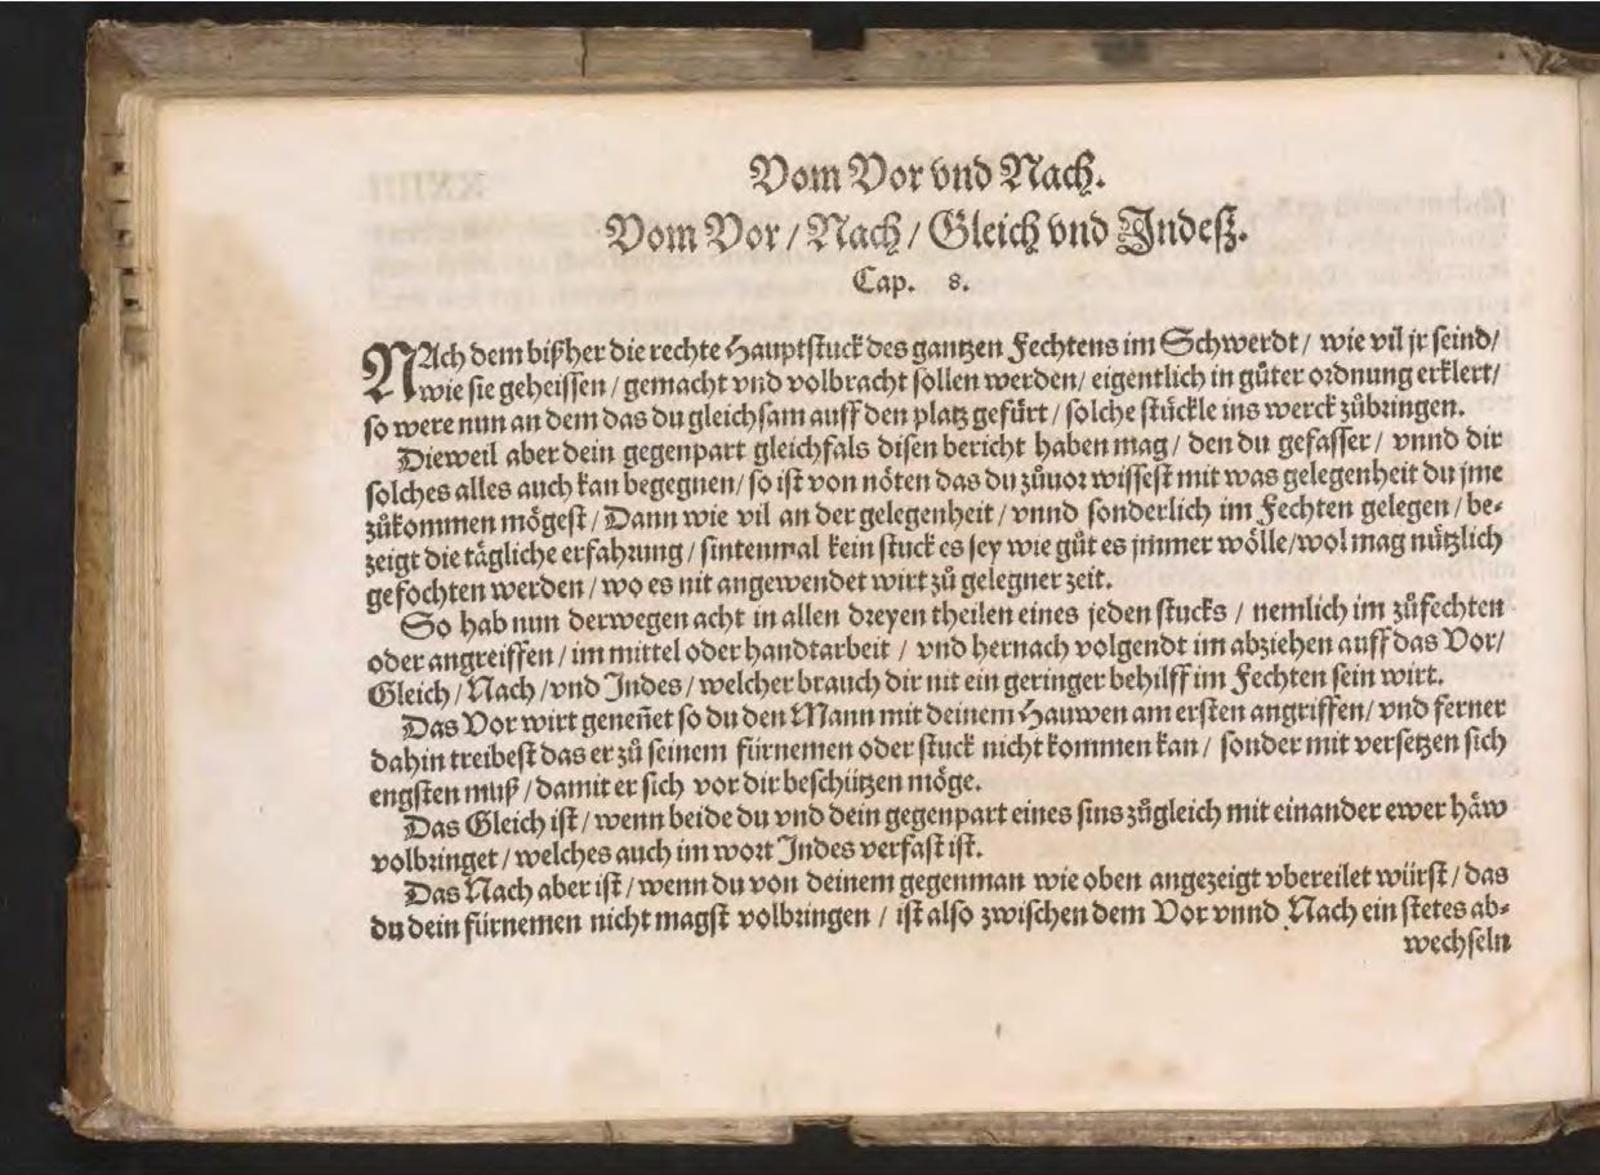 Vom Vor vnd Nach.
Vom Vor / Nach / Gleich vnd Indeß.
Cap. 8.
NAch dem bißher die rechte Hauptstuck des gantzen Fechtens im Schwerdt / wie vil jr seind /
wie sie geheissen / gemacht vnd volbracht sollen werden / eigentlich in gůter ordnung erklert /
so were nun an dem das du gleichsam auff den platz gefürt / solche stückle ins werck zůbringen.
Dieweil aber dein gegenpart gleichfals disen bericht haben mag / den du gefasser / vnnd dir
solches alles auch kan begegnen / so ist von nöten das du zůuor wissest mit was gelegenheit du jme
zůkommen mögest / Dann wie vil an der gelegenheit / vnnd sonderlich im Fechten gelegen / be⸗
zeigt die tägliche erfahrung / sintenmal kein stuck es sey wie gůt es jmmer wölle / wol mag nützlich
gefochten werden / wo es nit angewendet wirt zů gelegner zeit.
So hab nun derwegen acht in allen dreyen theilen eines jeden stucks / nemlich im zůfechten
oder angreiffen / im mittel oder handtarbeit / vnd hernach volgendt im abziehen auff das Vor /
Gleich / Nach / vnd Indes / welcher brauch dir nit ein geringer behilff im Fechten sein wirt.
Das Vor wirt geneñet so du den Mann mit deinem Hauwen am ersten angriffen / vnd ferner
dahin treibest das er zů seinem fürnemen oder stuck nicht kommen kan / sonder mit versetzen sich
engsten muß / damit er sich vor dir beschützen möge.
Das Gleich ist / wenn beide du vnd dein gegenpart eines sins zůgleich mit einander ewer häw
volbringet / welches auch im wort Indes verfast ist.
Das Nach aber ist / wenn du von deinem gegenman wie oben angezeigt vbereilet würst / das
du dein fürnemen nicht magst volbringen / ist also zwischen dem Vor vnnd Nach ein stetes ab⸗
wechseln